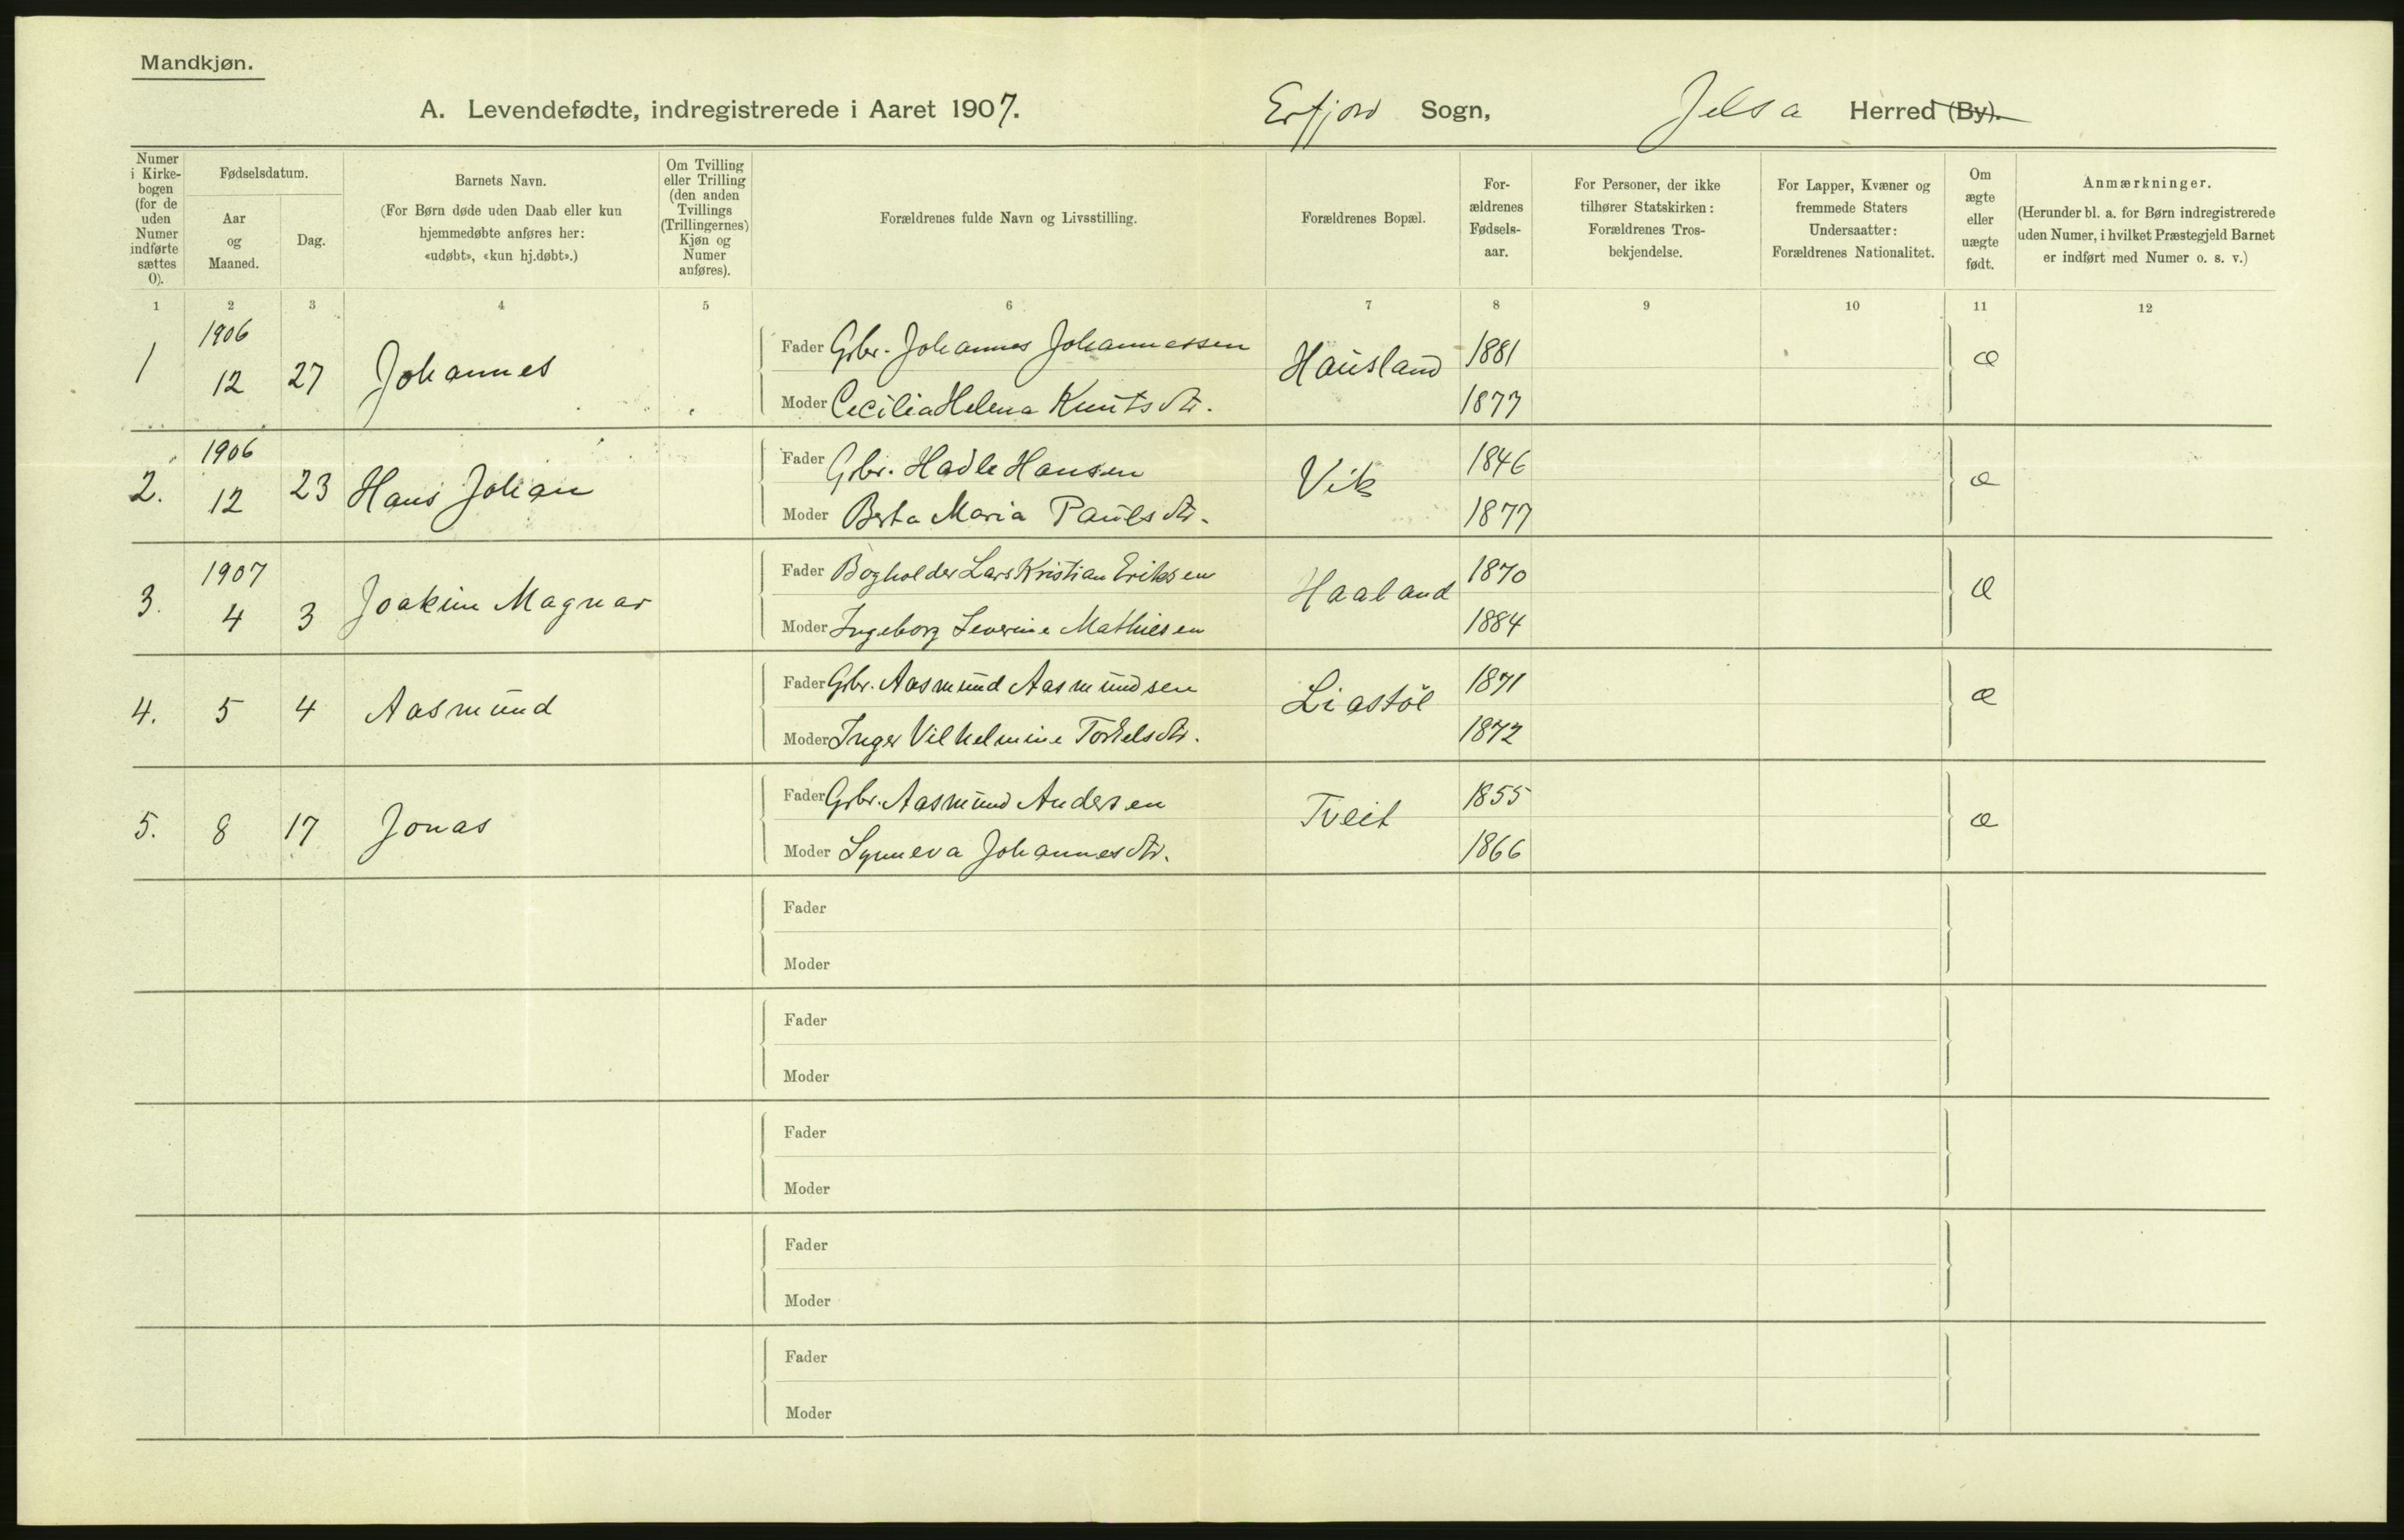 Mandkjøn.
A. Levendefødte, indregistrerede i Aaret 1907. Erfjord Sogn, Jelsa Herred (By).
Numer i Kirkebogen (for de uden Numer indførte sættes 0).
Fødselsdatum.
Aar og Maaned.
Dag.
Barnets Navn.
(For Børn døde uden Daab eller kun hjemmedøbte anføres her: «udøbt», «kun hj.døbt».)
Om Tvilling eller Trilling (den anden Tvillings (Trillingernes) Kjøn og Numer anføres).
Forældrenes fulde Navn og Livsstilling.
Forældrenes Bopæl.
Forældrenes Fødselsaar.
For Personer, der ikke tilhører Statskirken: Forældrenes Trosbekjendelse.
For Lapper, Kvæner og fremmede Staters Undersaatter: Forældrenes Nationalitet.
Om ægte eller uægte født.
Anmærkninger.
(Herunder bl. a. for Børn indregistrerede uden Numer, i hvilket Præstegjeld Barnet er indført med Numer o. s. v.)
1 2 3 4 5 6 7 8 9 10 11 12
1 1906 12 27 Johannes Fader Gbr. Johannes Johannessen Hausland 1881 æ
Moder Cecilia Helena Knutsdtr. 1877
2. 1906 12 23 Hans Johan Fader Gbr. Hadle Hansen Vik 1846 æ
Moder Berta Maria Paulsdtr. 1877
3. 1907 4 3 Joakim Magnar Fader Bogholder Lars Kristian Eriksen Haaland 1870 æ
Moder Ingeborg Severine Mathiesen 1884
4. 5 4 Aasmund Fader Gbr. Aasmund Aasmundsen Liastøl 1871 æ
Moder Inger Vilhelmine Torkelsdtr. 1872
5. 8 17 Jonas Fader Gbr. Aasmund Andersen Tveit 1855 æ
Moder Synneva Johannesdtr. 1866
Fader
Moder
Fader
Moder
Fader
Moder
Fader
Moder
Fader
Moder